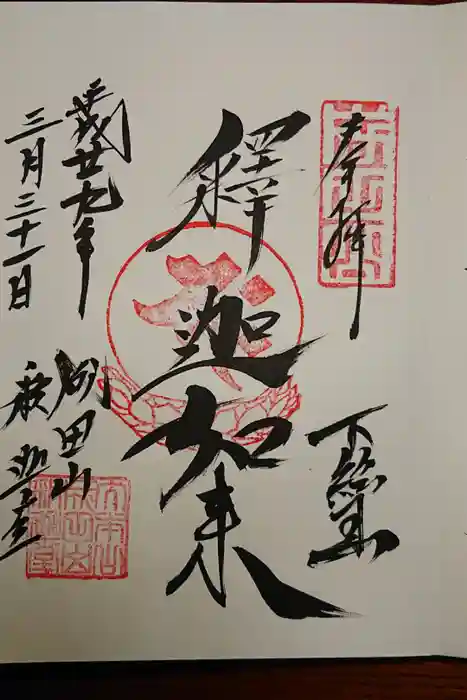 奉拝
下総国
釋迦如来
成田山
釈迦堂
平成廿九年
三月三十一日